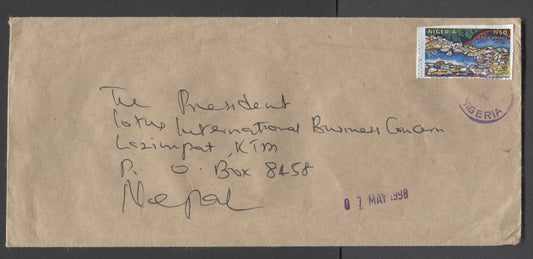 NIGERIA N50
NIGERIA
The President
lotus International Business Concern
Lazimpat, KTM
P. O. Box 8458
Nepal
07 MAY 1998